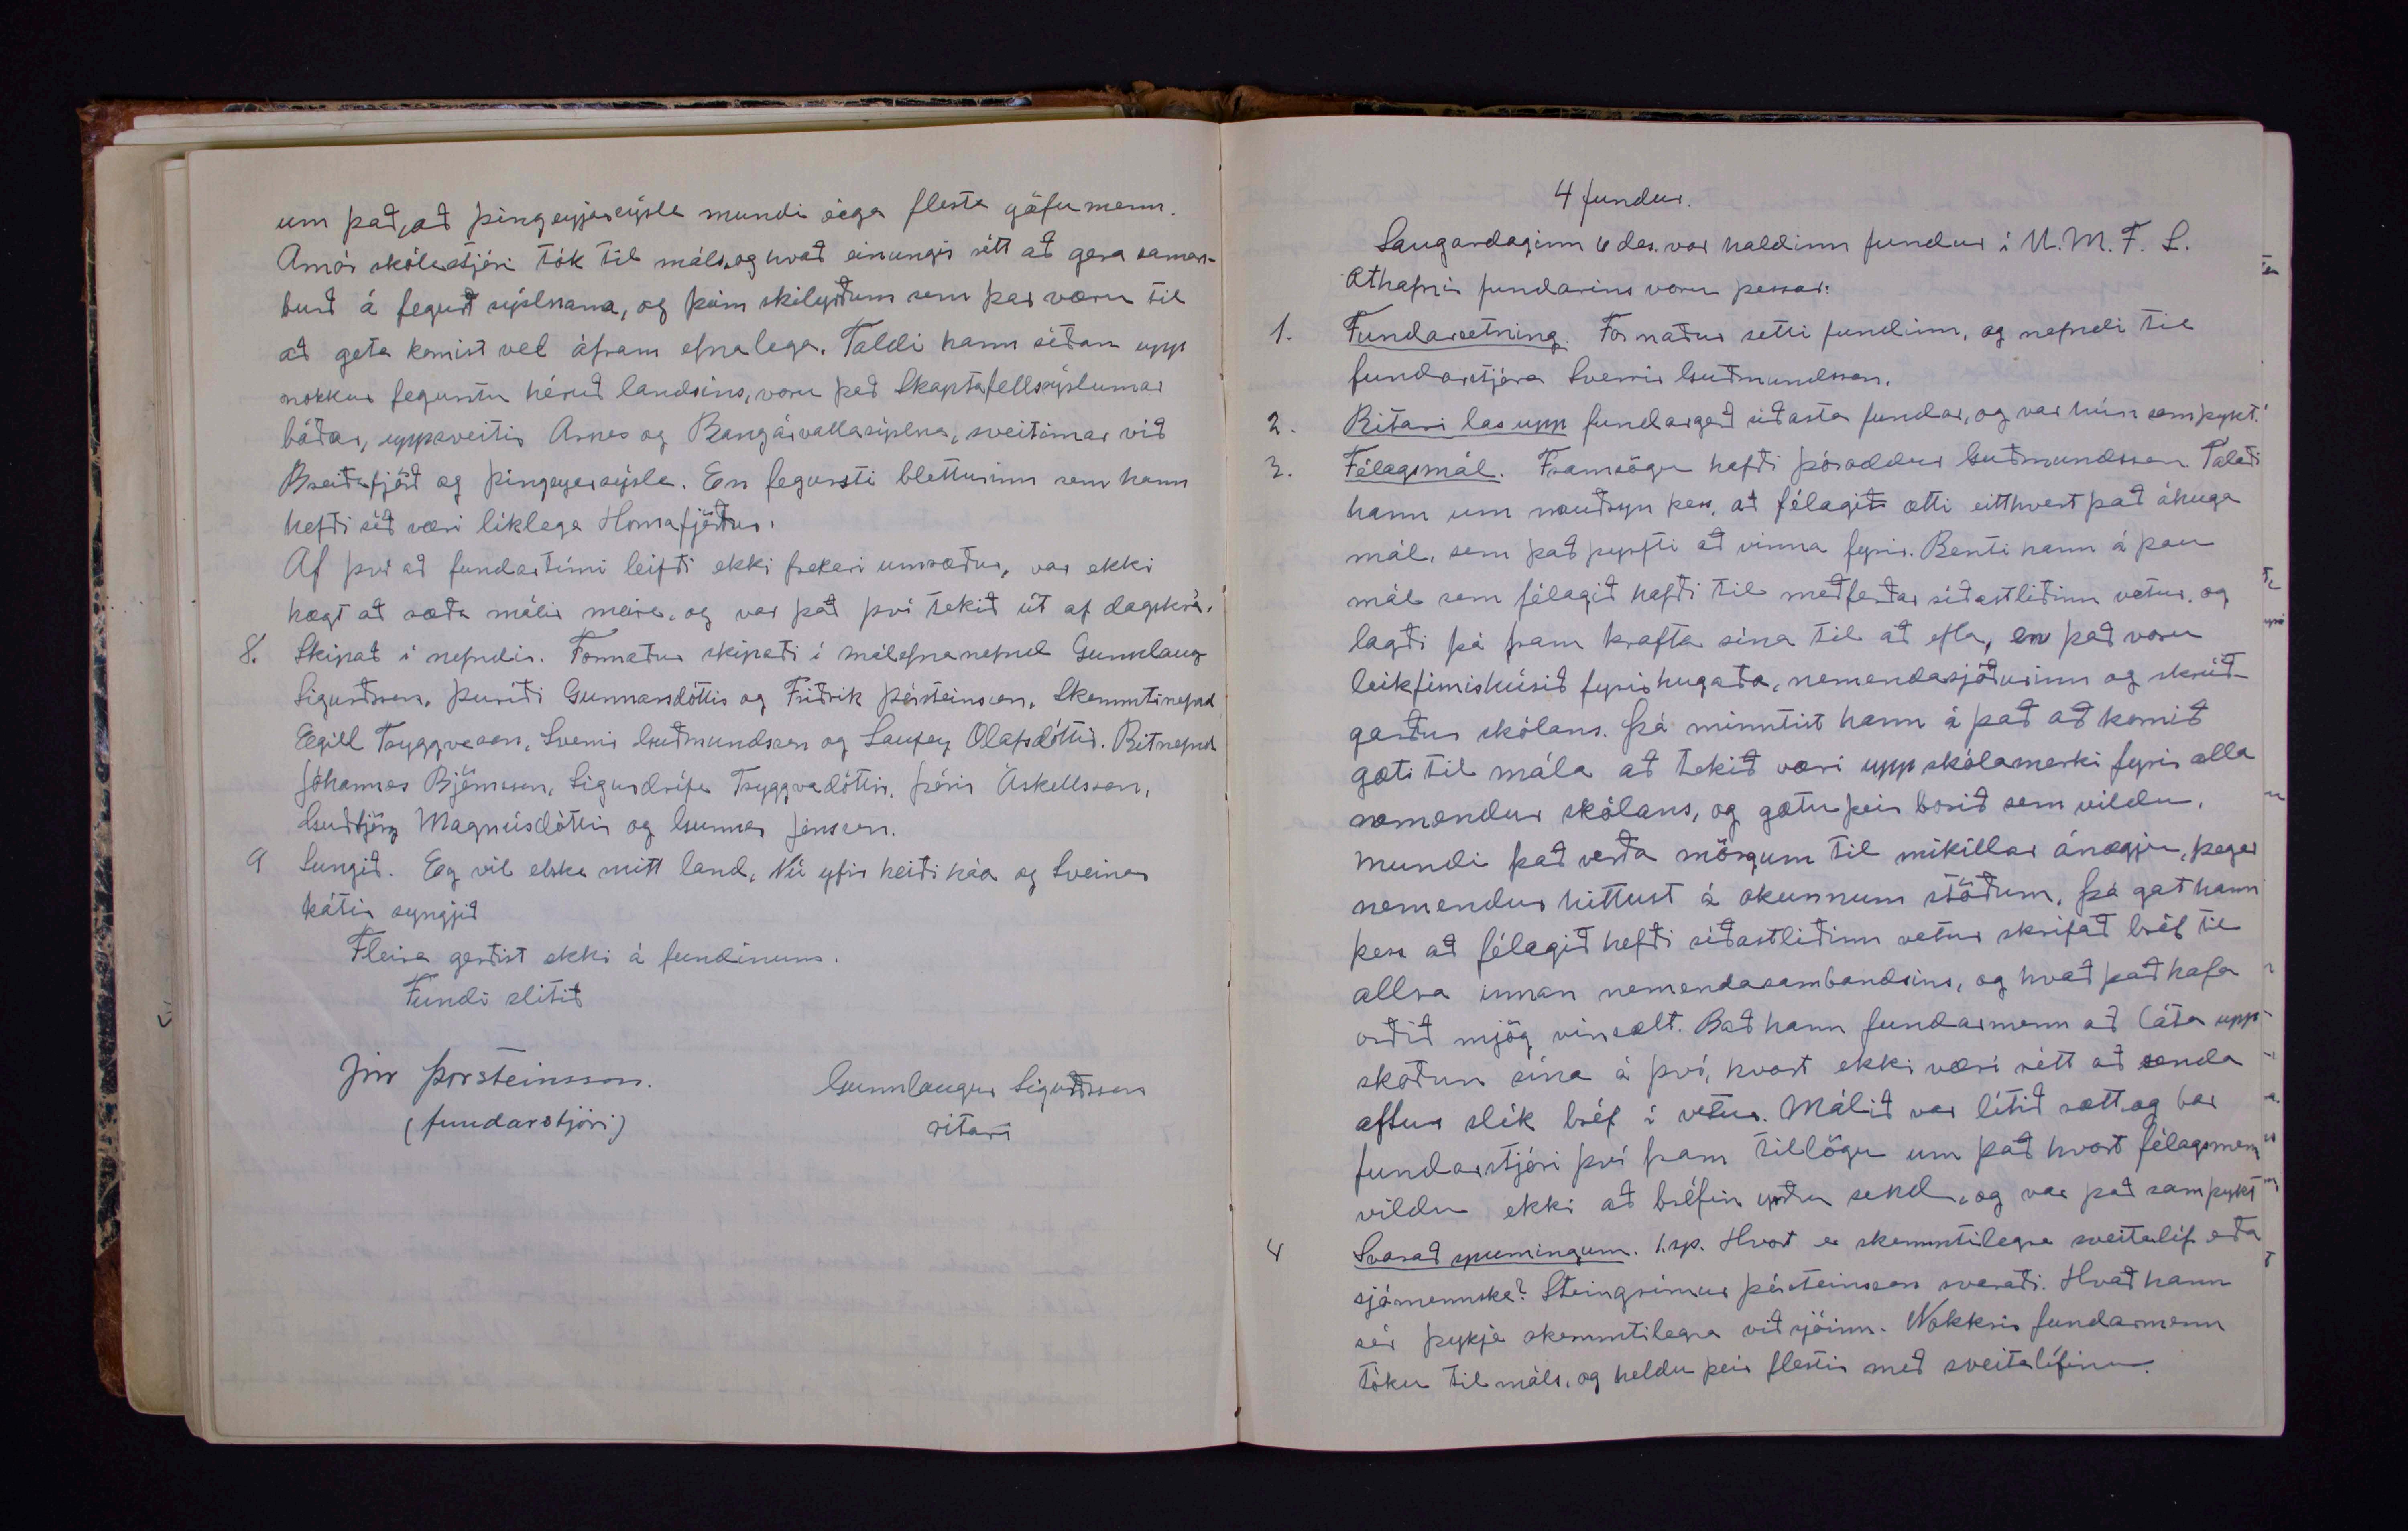 um það, að þingeyjarsýsla mundi eiga flesta gáfumenn.
Arnór skólastjóri tók til máls, og hvað einungis rétt að gera saman-
burð á fegurð sýslnana, og þeim skilyrðum sem þar væru til
að geta komist vel áfram efnalega. Taldi hann síðan upp
nokkur fegurstu héruð landsins, voru það Skaptafellssýslurnar
báðar, uppsveitir Árnes og Rangárvallasýslna, sveitirnar við
Breiðafjörð og þingeyarsýsla. En fegursti bletturinn sem hann
hefði séð væri líklega Hornafjörður.
Af því að fundartími leifði ekki frekari umræður, var ekki
hægt að ræða málið meira, og var það því tekið út af dagskrá.
8. Skipað í nefndir. Formaður skipaði í málefnanefnd Gunnlaug
Sigurðsson, þuríði Gunnarsdóttir og Friðrik þórsteinsson. Skemmtinefnd
Egill Tryggvason, Sverrir Guðmundsson og Laufey Ólafsdóttir. Ritnefnd
Jóhannes Björnsson, Sigurdrífa Tryggvadóttir, þórir Áskellsson,
Guðbjörg Magnúsdóttir og Gunnar Jónsson.
9 Sungið. Eg vil elska mitt land, Nú yfir heiði háa og Sveinar
kátir syngjið
Fleira gerðist ekki á fundinum.
Fundi slitið
Jón Þorsteinsson.
(fundarstjóri)
Gunnlaugur Sigurðsson
ritari
4 fundur.
Laugardaginn 6 des. var haldinn fundur í U.M.F.L.
Athafnir fundarins voru þessar:
1. Fundarsetning. Formaður setti fundinn, og nefndi til
fundarstjóra Sverrir Guðmundsson.
2. Ritari las upp fundargerð síðasta fundar, og var hún samþykt.
3. Félagsmál. Framsögu hafði þóroddur Guðmundsson. Talaði
hann um nauðsyn þess, að félagið ætti eitthvert það áhuga
mál, sem það þyrfti að vinna fyrir. Benti hann á þau
mál sem félagið hafði til meðferðar síðastliðinn vetur, og
lagði þá fram krafta sína til að efla, en það voru
leikfimishúsið fyrirhugaða, nemendasjóðurinn og skrúð-
garður skólans. Þá minntist hann á það að komið
gæti til mála að tekið væri upp skólamerki fyrir alla
nemendur skólans, og gætu þeir borið sem vildu.
Mundi það verða mörgum til mikillar ánægju, þegar
nemendur hittust á ókunnum stöðum. Þá gat hann
þess að félagið hefði síðastliðinn vetur skrifað bréf til
allra innan nemendasambandsins, og hvað það hafa
orðið mjög vinsælt. Bað hann fundarmenn að láta upp-
skoðun sína á því, hvort ekki væri rétt að senda
aftur slík bréf í vetur. Málið var lítið rætt, og bar
fundarstjóri því fram tillögu um það hvort félagsmenn
vildu ekki að bréfin yrðu send, og var það samþykt
4 Svarað spurningum. 1. sp. Hvort er skemmtilegra sveitalíf eða
sjómennska? Steingrímur þórsteinsson svaraði. Hvað hann
sér þykja skemmtilegra við sjóinn. Nokkrir fundarmenn
tóku til máls, og heldu þeir flestir með sveitalífinu.